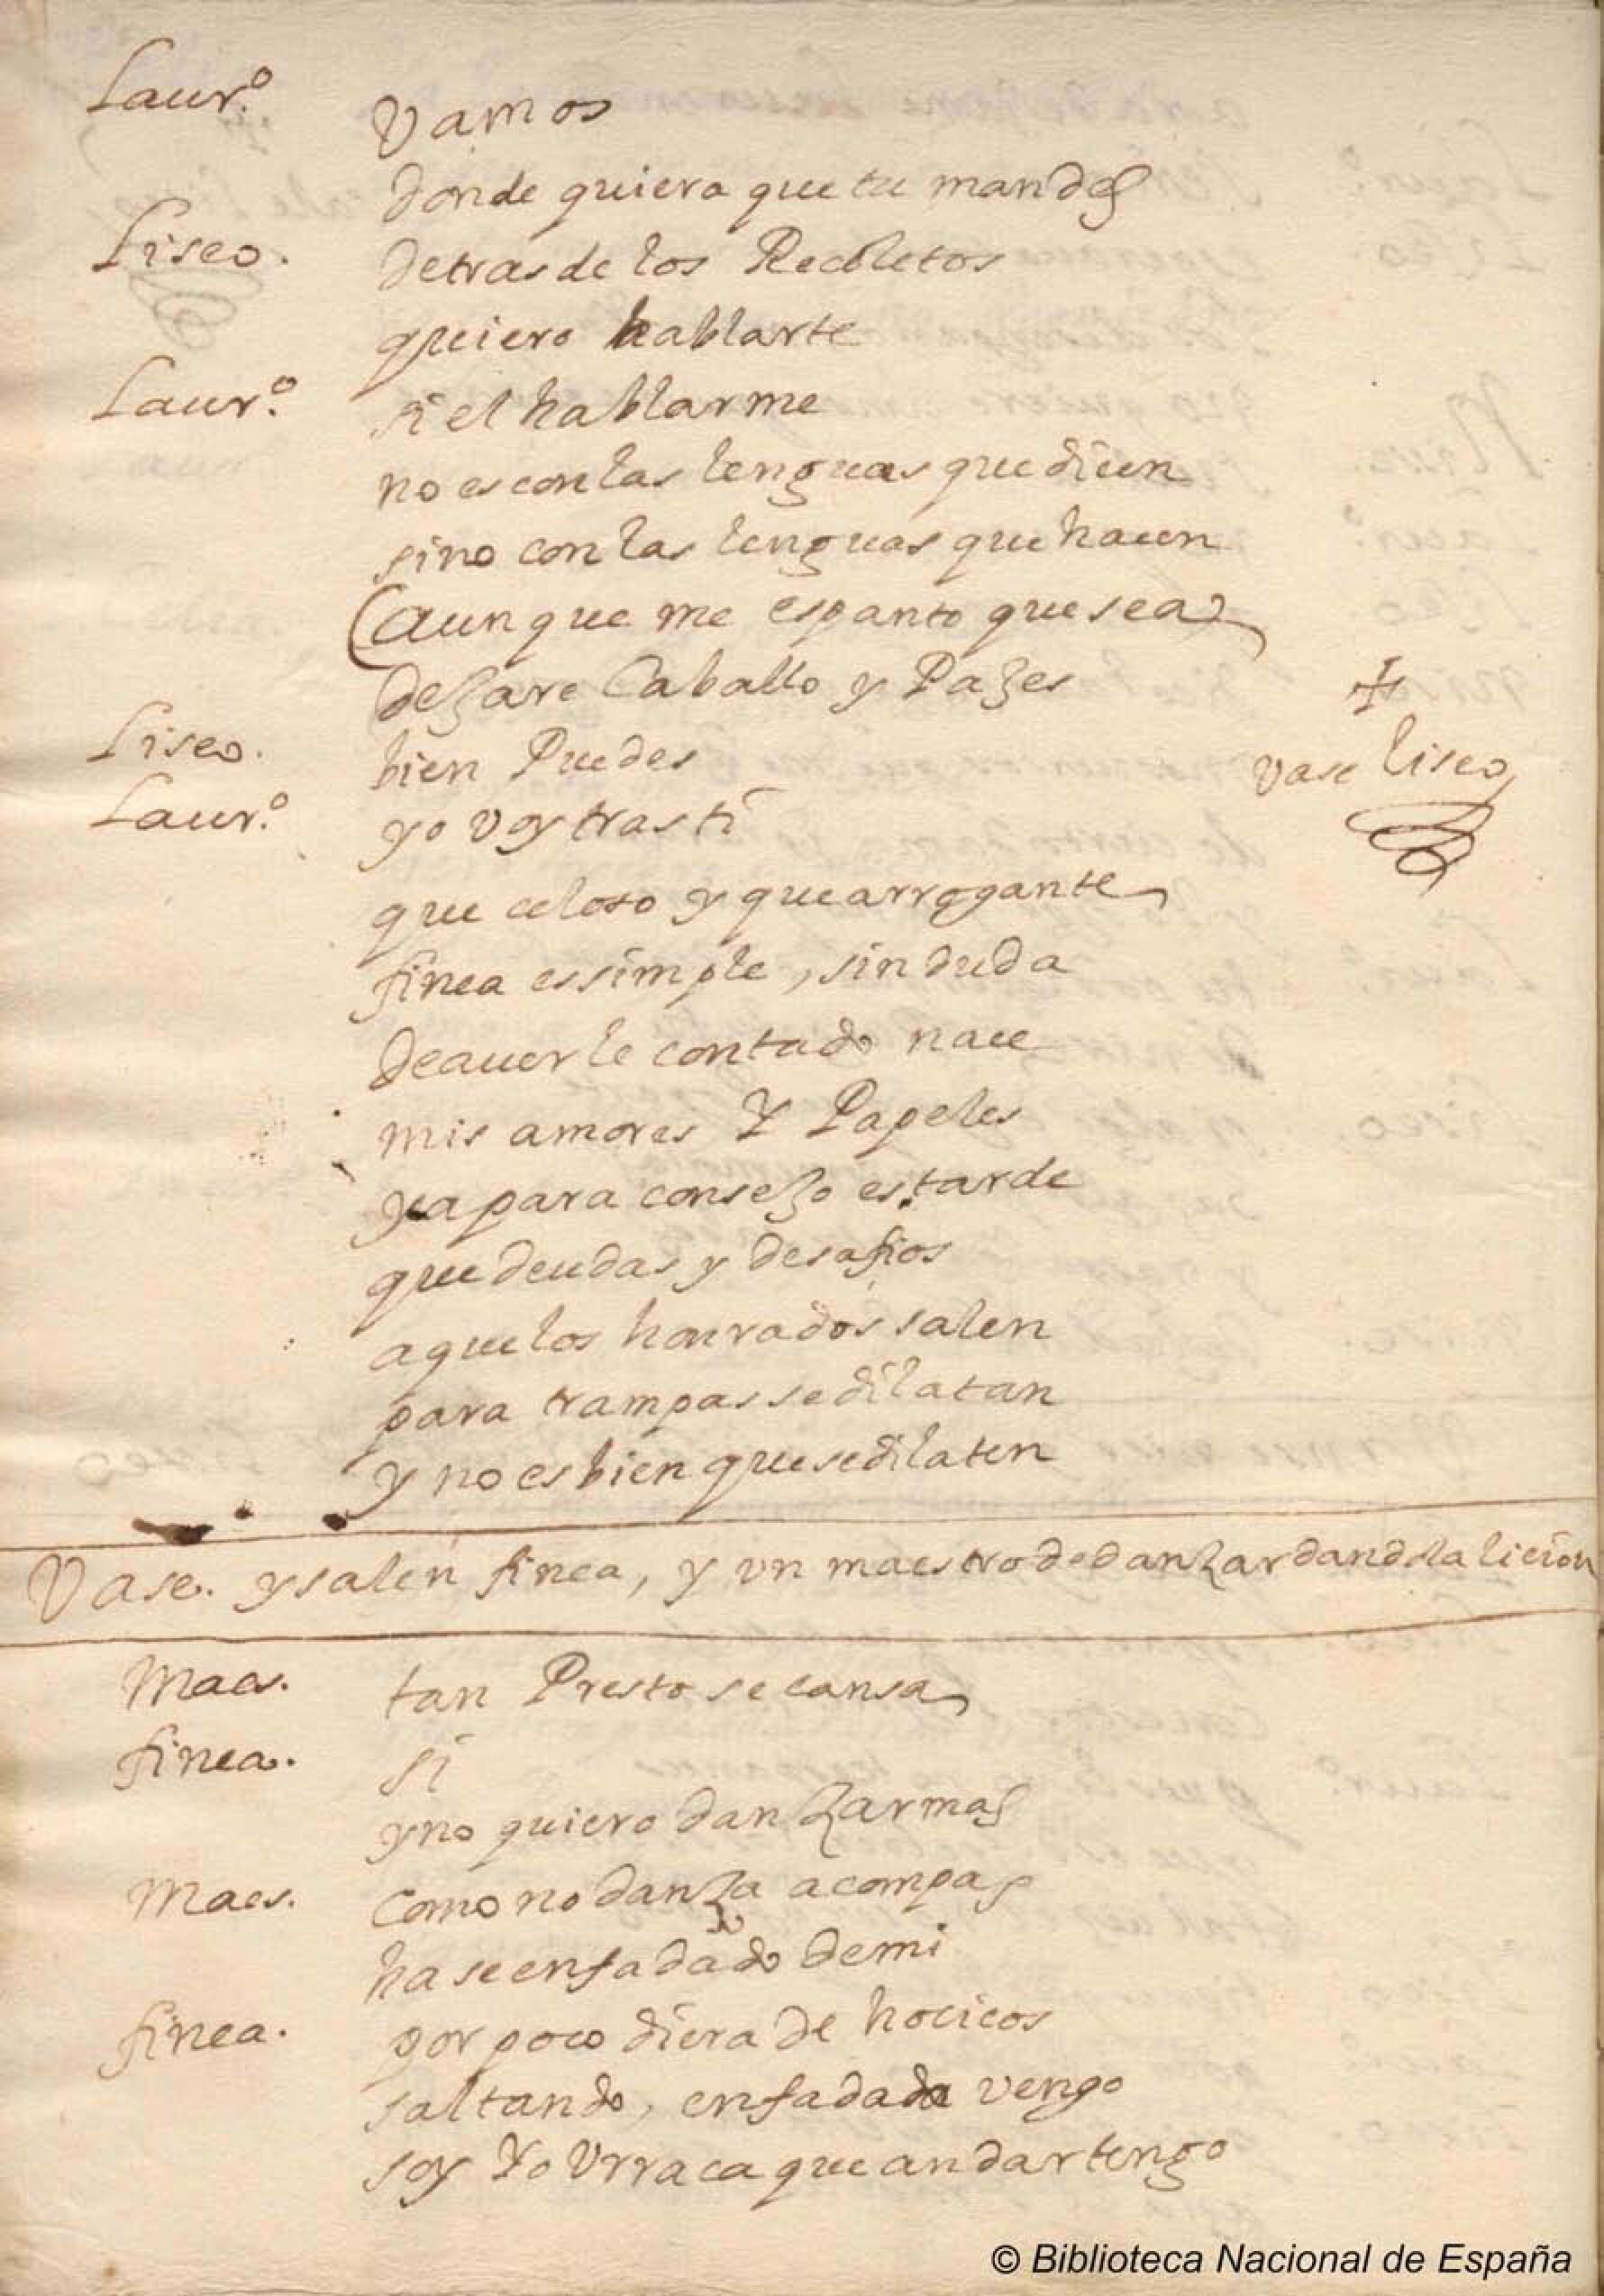 Laurº. Vamos
donde quiera que tu mandes
Liseo. detras de los Recoletos
quiero hablarte
Laurº. si el hablarme
no es con las lenguas que dicen
sino con las lenguas que hacen
(aun que me espanto que sea)
dejare Caballo y Pajes
Liseo. bien Puedes
vase liseo
Laurº. yo voy tras ti
que celoso y que arrogante
finea es simple, sin duda
de auerle contado nace
mis amores Y Papeles
ya para consejo es tarde
que deudas y desafios
a que los honrados salen
para trampas se dilatan
y no es bien que se dilaten
Vase. y salen finea, y vn maestro de danzar dandola licion
Maes. tan Presto se cansa
finea. si
y no quiero danzar mas
Maes. Como no danza a compas
hase enfadado de mi
finea. por poco diera de hocicos
saltando, enfadada vengo
soy Yo Vrraca que andar tengo
© Biblioteca Nacional de España